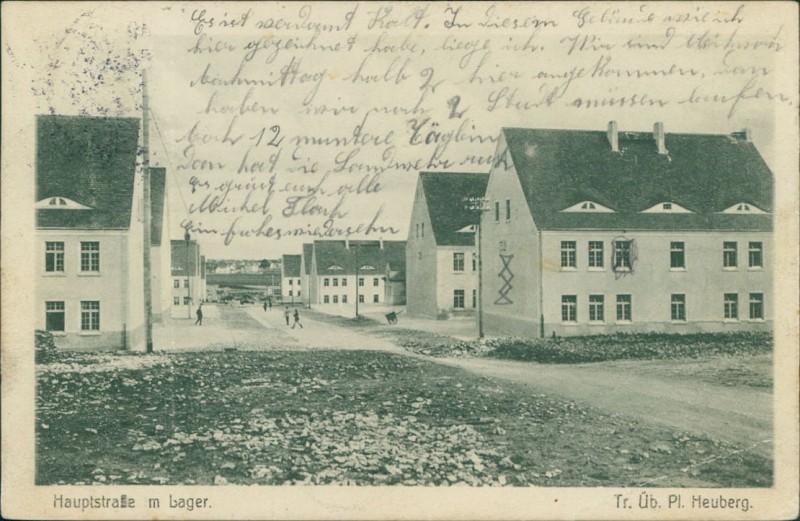 Es ist verdamt Kalt. In diesem Gebäude wie ich
hier gezeichnet habe, liege ich. Wir sind Mittwoch
Nachmittag halb 2 hier angekommen, dan
haben wir noch 2 Studt müssen laufen,
Noch 12 muntere Täglein
Dan hat die Landwehr ruh
Es grüst euch alle
Michel
Ein frohes wiedersehn
Hauptstraße m Lager.
Tr. Üb. Pl. Heuberg.